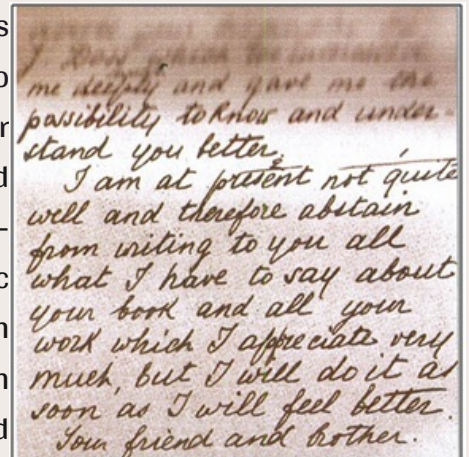 s
o
r
d
-
c
n
n
d
me deeply and gave me the
possibility to know and under-
stand you better.
I am at present not quite
well and therefore abstain
from writing to you all
what I have to say about
your book and all your
work which I appreciate very
much, but I will do it as
soon as I will feel better.
Your friend and brother.